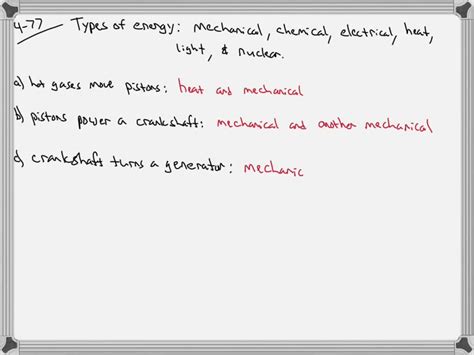 4-77 Types of energy: mechanical, chemical, electrical, heat,
light, & nuclear.
a) hot gases move pistons: heat and mechanical
b) pistons power a crankshaft: mechanical and another mechanical
d) crankshaft turns a generator: mechanic